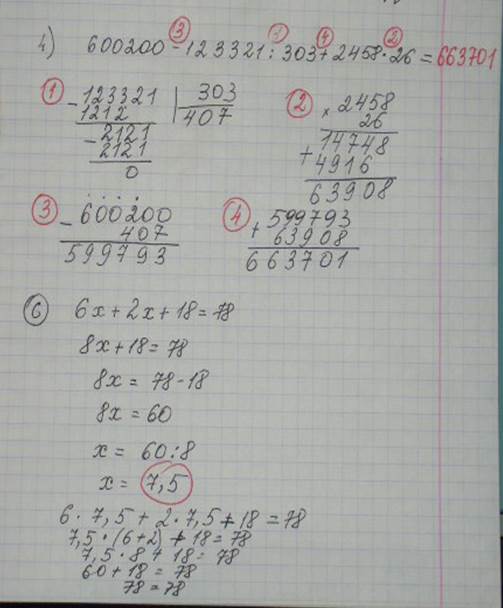 4) 600200 - 123321 : 303 + 2458 · 26 = 663701
3 1 4 2
1
- 123321 | 303
1212 407
- 2121
2121
0
2
× 2458
26
14748
+ 4916
63908
3
- 600200
407
599793
4
+ 599793
63908
663701
6 6x + 2x + 18 = 78
8x + 18 = 78
8x = 78 - 18
8x = 60
x = 60 : 8
x = 7,5
6 · 7,5 + 2 · 7,5 + 18 = 78
7,5 · (6+2) + 18 = 78
7,5 · 8 + 18 = 78
60 + 18 = 78
78 = 78